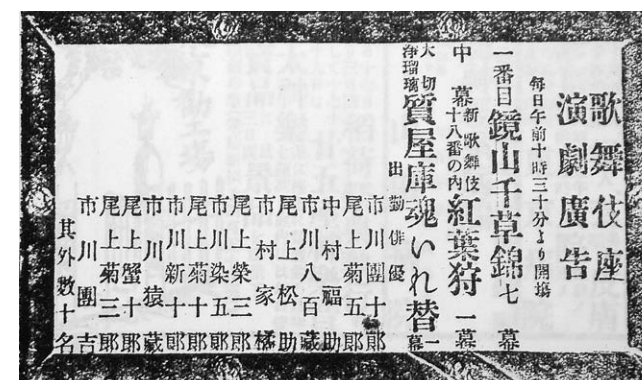 歌舞伎座
演劇廣告
每日午前十時三十分より開塲
一番目 鏡山千草錦 七幕
中幕 新歌舞伎十八番の內 紅葉狩 一幕
大切 淨瑠璃 質屋庫魂いれ替 一幕
出勤俳優
市川團十郎
尾上菊五郎
中村福助
市川八百藏
尾上松助
市村家橘
尾上榮三郎
市川染五郎
尾上菊十郎
市川新十郎
市川猿藏
尾上蟹十郎
尾上菊三郎
市川團吉
其外數十名